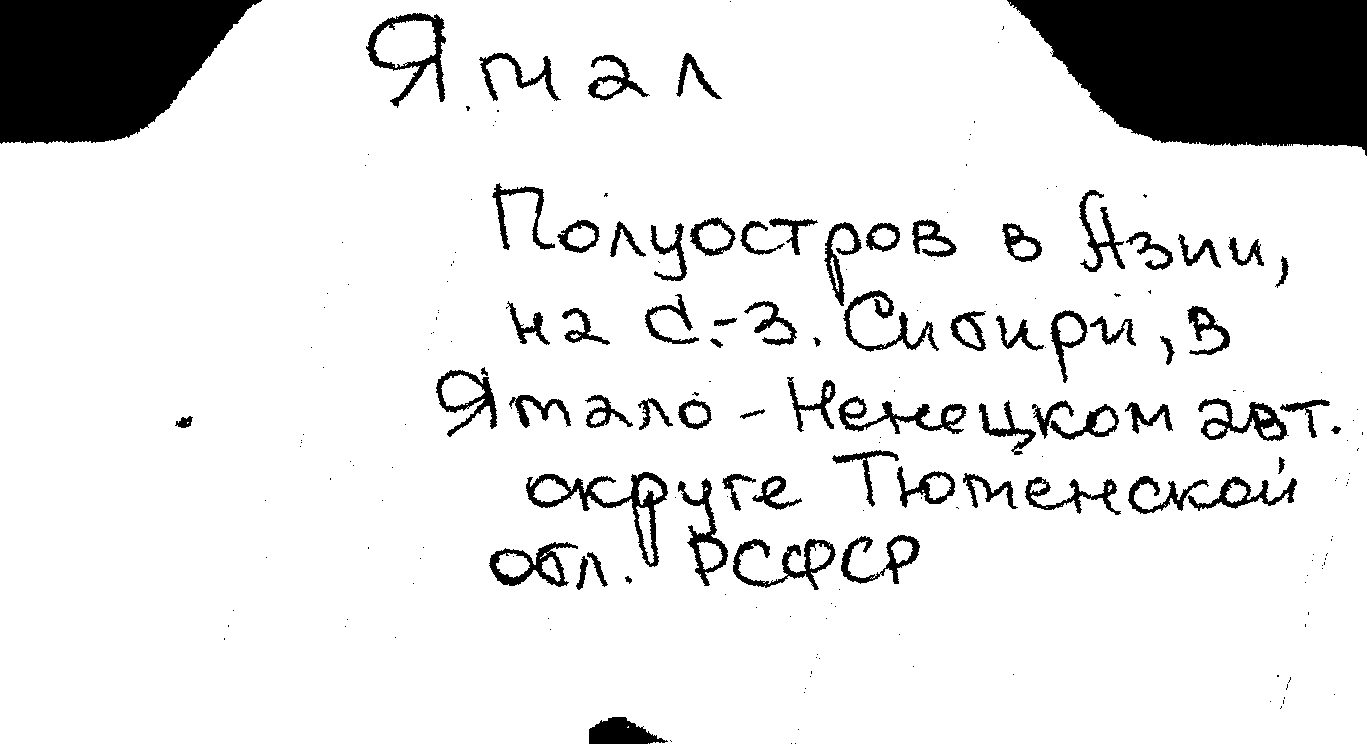 Ямал
Полуостров в Азии,
на С.-З. Сибири, в
Ямало-Ненецком авт.
округе Тюменской
обл. РСФСР